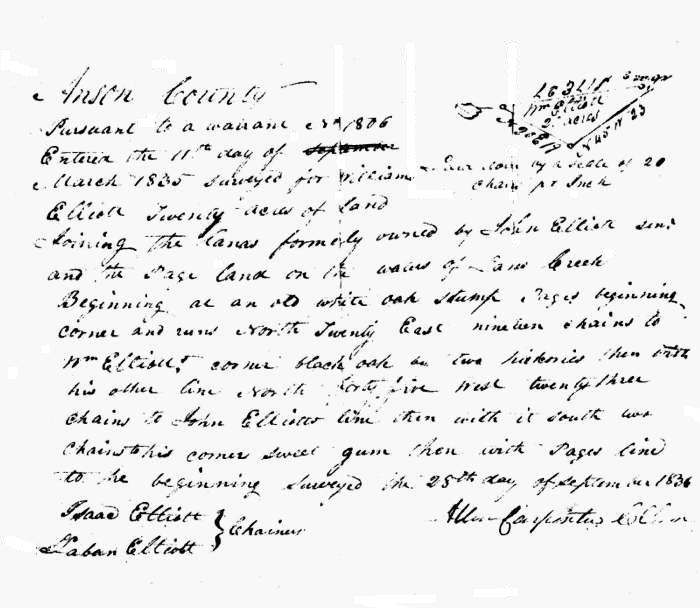 Anson County
Pursuant to a warrant No 1806
Entered the 11th day of September
March 1835 surveyed for William
Elliott Twenty acres of Land
Joining the lands formerly owned by John Elliott senr
and the Page land on the waters of Lanes Creek
Beginning at an old white oak stump Pages beginning
corner and runs North Twenty East nineteen chains to
Wm Elliotts corner black oak by two hickories then with
his other line North forty five west twenty three
chains to John Elliotts line then with it south two
chains to his corner sweet gum then with Pages line
to the beginning surveyed the 25th day of September 1836
Isaac Elliott
Laban Elliott
Chainers
Allen Carpenter
Wm Elliott
20 acres
N 45 W 23
Laid down by a scale of 20
chains pr Inch